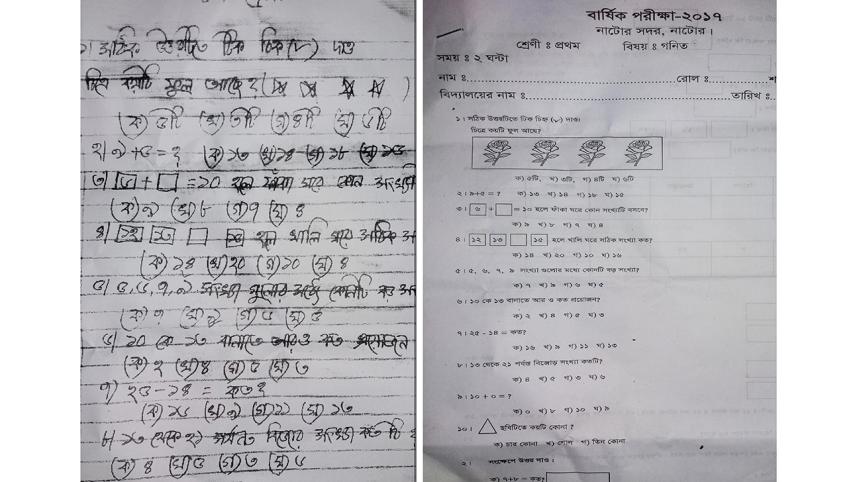 ১। সঠিক উত্তরটিতে টিক চিহ্ন (৵) দাও
চিত্রে কয়টি ফুল আছে?
(ক) ৫টি (খ) ৩টি (গ) ৪টি (ঘ) ৬টি
২। ৯+৫=? (ক) ১৩ (খ) ১৪ (গ) ১৮ (ঘ) ১৫
+ =১০ হলে ফাঁকা ঘরে কোন
(ক) ৯ (খ) ৮ (গ) ৭ (ঘ) ৪
৪। ১২ ১৩ ১৫ হলে খালি ঘরে সঠিক
(ক) ১৪ (খ) ২০ (গ) ১০ (ঘ)
৫। ৫, ৬, ৭, ৯ সংখ্যা গুলোর মধ্যে কোনটি বড়
(ক) ৭ (খ) ৯ (গ) ৬ (ঘ) ৫
৬। ১০ কে ১৩ বানাতে আরও কত প্রয়োজন
(ক) ২ (খ) ৪ (গ) ৫ (ঘ) ৩
৭) ২৫-১৪ = কত?
(ক) ১৬ (খ) ৯ (গ) ১১ (ঘ) ১৩
৮। ১৩ থেকে ২১ পর্যন্ত বিজোড় সংখ্যা কত টি
(ক) ৪ (খ) ৫ (গ) ৩ (ঘ) ৬
বার্ষিক পরীক্ষা-২০১৭
নাটোর সদর, নাটোর।
শ্রেণী ঃ প্রথম বিষয় ঃ গনিত
সময় ঃ ২ ঘন্টা
নাম ঃ রোল ঃ
বিদ্যালয়ের নাম ঃ তারিখ ঃ
১। সঠিক উত্তরটিতে টিক চিহ্ন (৵) দাও।
চিত্রে কয়টি ফুল আছে?
ক) ৫টি, খ) ৩টি, গ) ৪টি খ) ৬টি
২। ৯+৫ = ? ক) ১৩ খ) ১৪ গ) ১৮ ঘ) ১৫
৩। ৬ + = ১০ হলে ফাঁকা ঘরে কোন সংখ্যাটি বসবে?
ক) ৯ খ) ৮ গ) ৭ ঘ) ৪
৪। ১২ ১৩ ১৫ হলে খালি ঘরে সঠিক সংখ্যা কত?
ক) ১৪ খ) ২০ গ) ১০ ঘ) ১৬
৫। ৫, ৬, ৭, ৯ সংখ্যা গুলোর মধ্যে কোনটি বড় সংখ্যা?
ক) ৭ খ) ৯ গ) ৬ ঘ) ৫
৬। ১০ কে ১৩ বানাতে আর ও কত প্রয়োজন?
ক) ২ খ) ৪ গ) ৫ ঘ) ৩
৭। ২৫ - ১৪ = কত?
ক) ১৬ খ) ৯ গ) ১১ ঘ) ১৩
৮। ১৩ থেকে ২১ পর্যন্ত বিজোড় সংখ্যা কতটি?
ক) ৪ খ) ৫ গ) ৩ ঘ) ৬
৯। ১০ + ০ = ?
ক) ০ খ) ৮ গ) ১০ ঘ) ৯
১০। ছবিটিতে কয়টি কোনা ?
ক) চার কোনা খ) গোল গ) তিন কোনা
২। সংক্ষেপে উত্তর দাও ঃ
ক) ৭+৮ = কত?